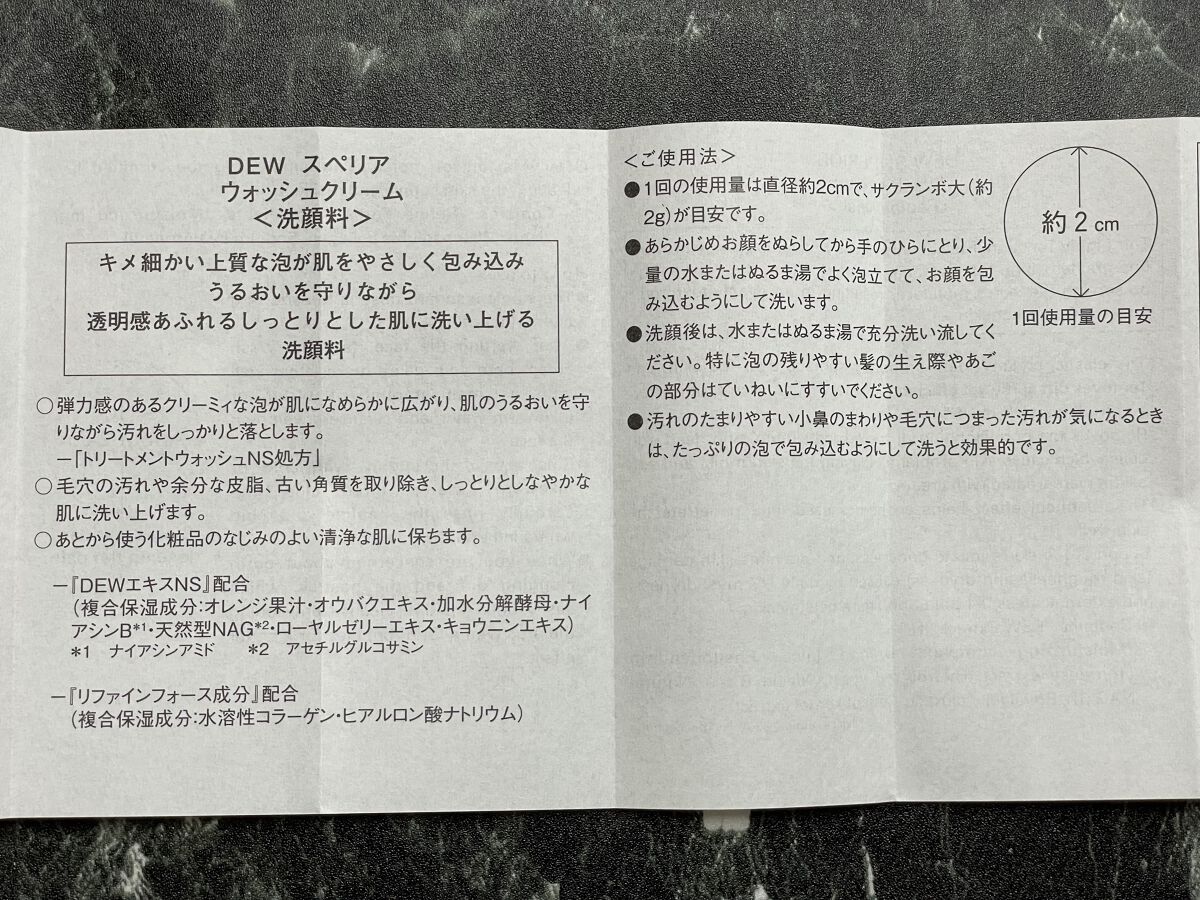 DEW スペリア
ウォッシュクリーム
＜洗顔料＞
キメ細かい上質な泡が肌をやさしく包み込み
うるおいを守りながら
透明感あふれるしっとりとした肌に洗い上げる
洗顔料
○弾力感のあるクリーミィな泡が肌になめらかに広がり、肌のうるおいを守
りながら汚れをしっかりと落とします。
－「トリートメントウォッシュNS処方」
○毛穴の汚れや余分な皮脂、古い角質を取り除き、しっとりとしなやかな
肌に洗い上げます。
○あとから使う化粧品のなじみのよい清浄な肌に保ちます。
－『DEWエキスNS』配合
（複合保湿成分：オレンジ果汁・オウバクエキス・加水分解酵母・ナイ
アシンB*1・天然型NAG*2・ローヤルゼリーエキス・キョウニンエキス）
*1　ナイアシンアミド　　*2　アセチルグルコサミン
－『リファインフォース成分』配合
（複合保湿成分：水溶性コラーゲン・ヒアルロン酸ナトリウム）
＜ご使用法＞
●1回の使用量は直径約2cmで、サクランボ大（約
2g）が目安です。
●あらかじめお顔をぬらしてから手のひらにとり、少
量の水またはぬるま湯でよく泡立てて、お顔を包
み込むようにして洗います。
●洗顔後は、水またはぬるま湯で充分洗い流してく
ださい。特に泡の残りやすい髪の生え際やあご
の部分はていねいにすすいでください。
●汚れのたまりやすい小鼻のまわりや毛穴につまった汚れが気になるとき
は、たっぷりの泡で包み込むようにして洗うと効果的です。
約2cm
1回使用量の目安